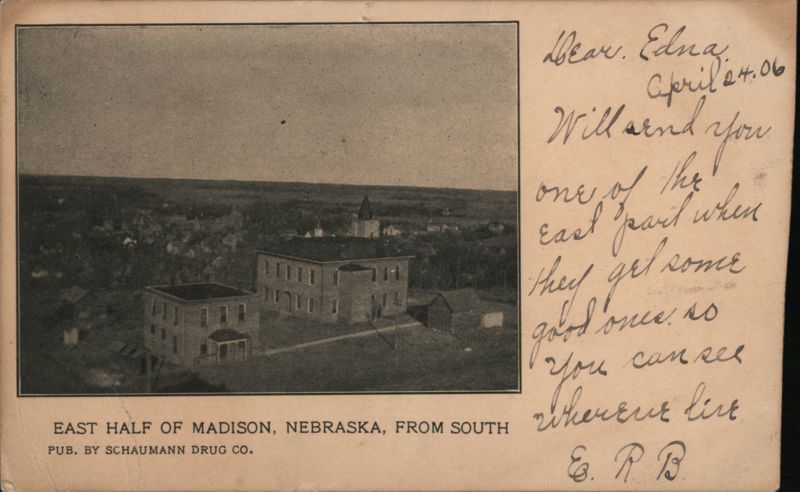 Dear. Edna.
April 24.06
Will send you
one of the
east part when
they get some
good ones. so
you can see
where we live
E. R B.
EAST HALF OF MADISON, NEBRASKA, FROM SOUTH
PUB. BY SCHAUMANN DRUG CO.